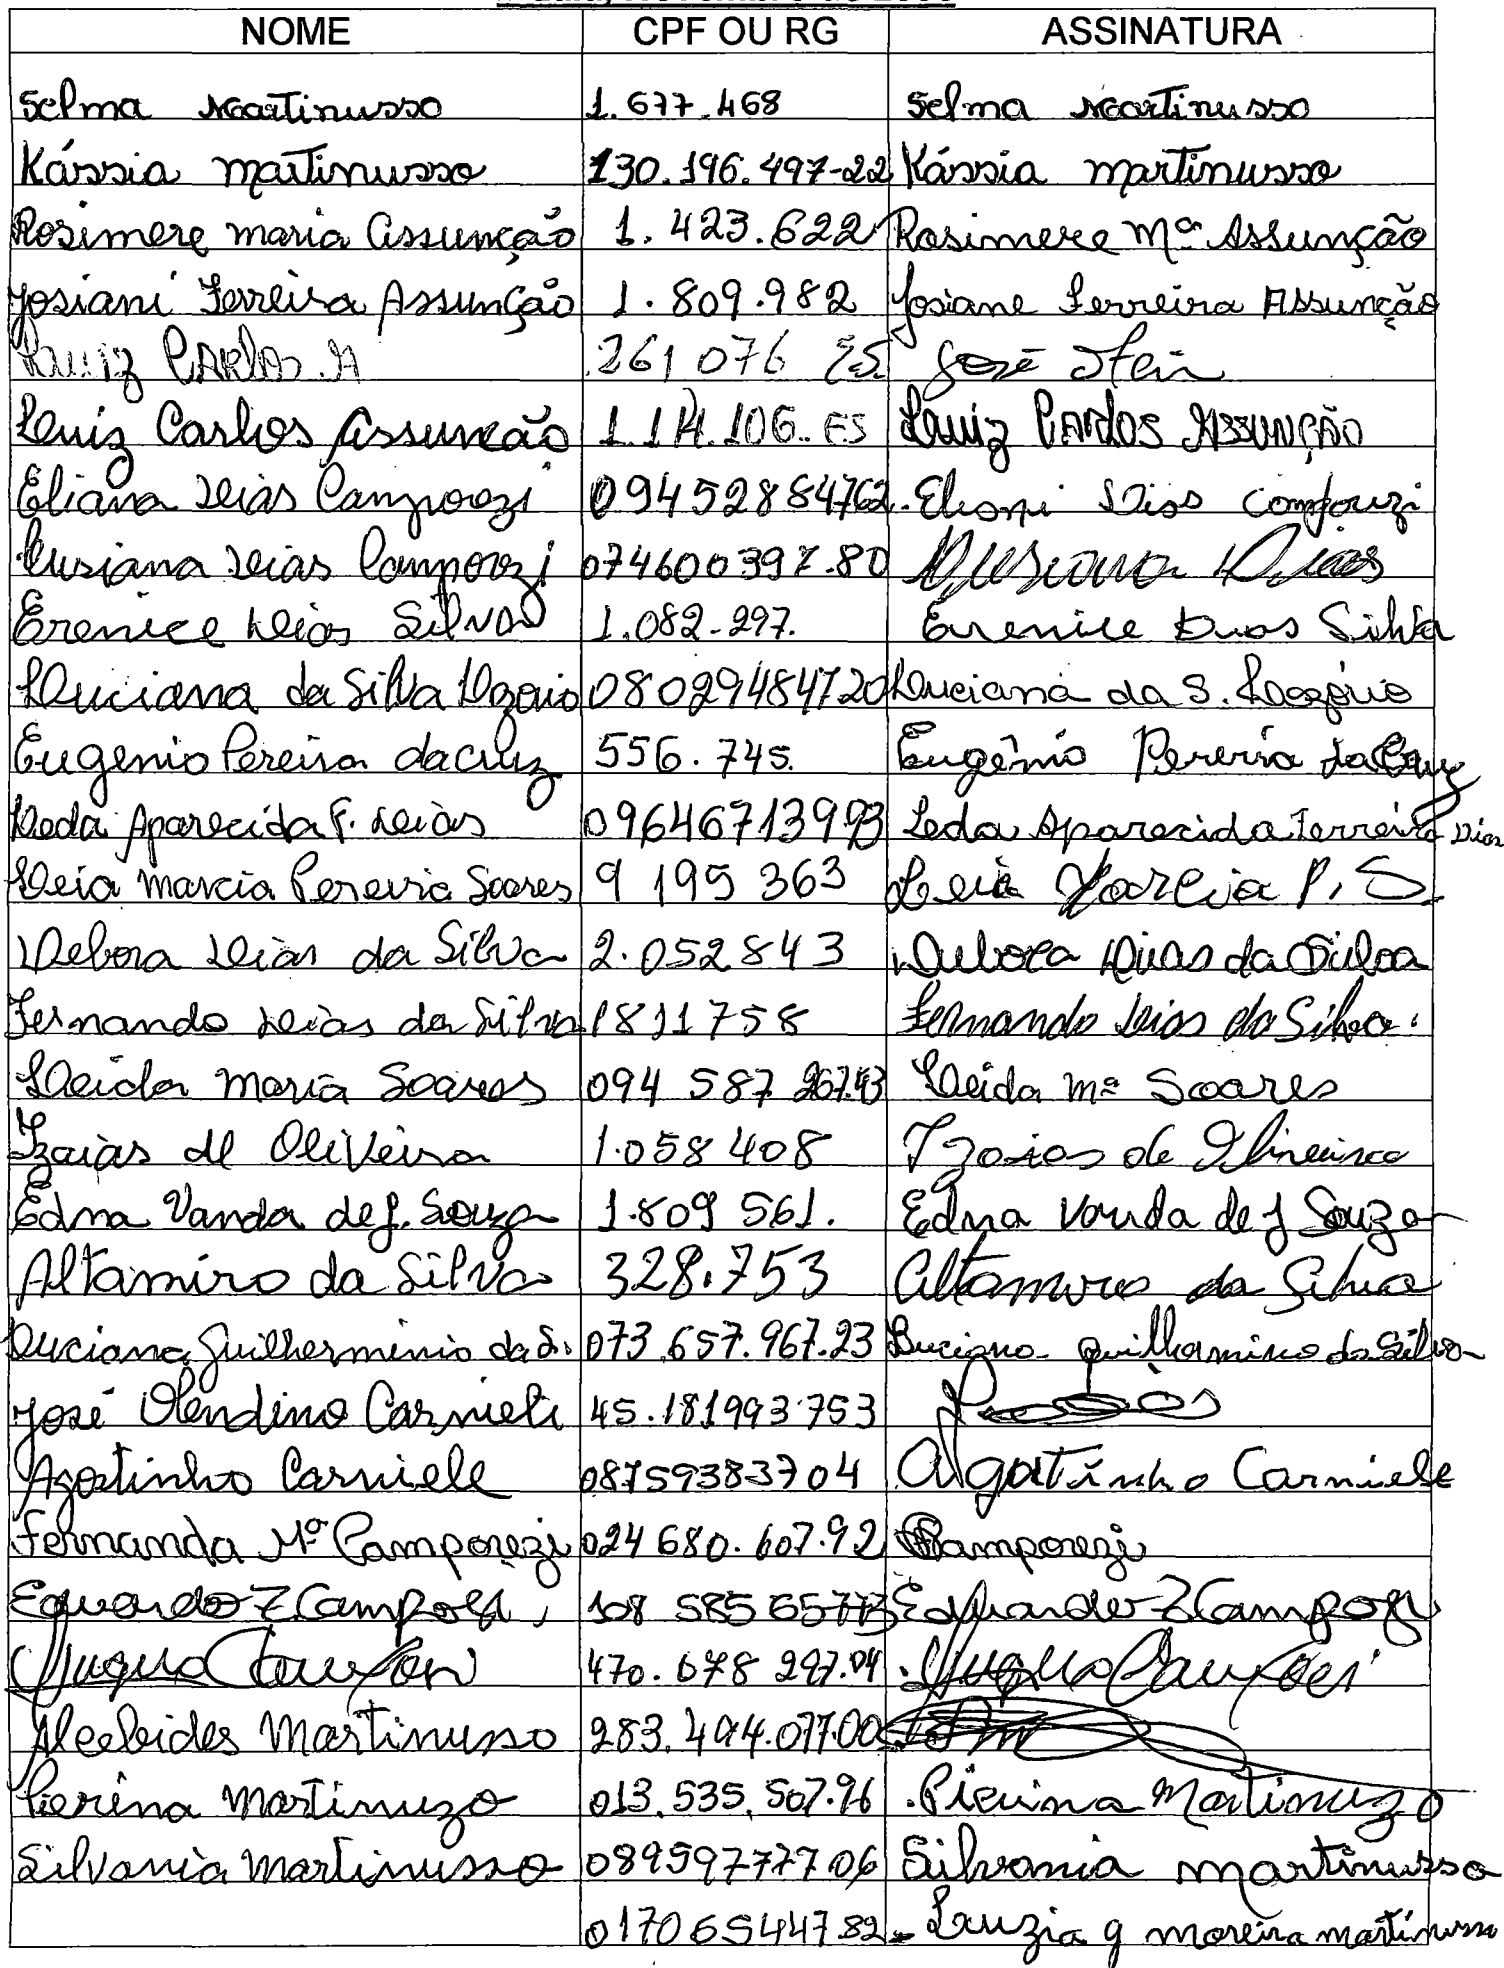 NOME CPF OU RG ASSINATURA
Selma Martinusso 1.677.468 Selma Martinusso
Kássia martinusso 130.196.497-22 Kássia martinusso
Rosimere maria Assunção 1.423.622 Rosimere Mª Assunção
Josiani Ferreira Assunção 1.809.982 Josiane Ferreira Assunção
Luiz Carlos A 261 076 ES José Stein
Luiz Carlos Assunção 1.114.106. ES Luiz Carlos Assunção
Eliana Dias Camporezi 09452884762 Dias
Lusiana Dias Camporezi 07460039 .80 Dias
Erenice Dias Silva 1.082-297. Erenice Dias Silva
Luciana da Silva 08029484720 Luciana da S.
Eugenio Pereira da cruz 556.745. Eugênio Pereira da Cruz
Leda Aparecida F. Dias 096467139 Leda Aparecida Ferreira Dias
Leia Marcia Pereira Soares 9 195 363 Leia Marcia P. S.
Debora Dias da Silva 2.052843 Debora Dias da Silva
Fernando Dias da Silva 1811758 Fernando Dias da Silva.
Leida Maria Soares 094 587 Leida Mª Soares
Izaias de Oliveira 1.058 408 Izaias de Oliveira
Edna Vanda de J. Souza 1.809 561. Edna Vanda de J Souza
Altamiro da Silva 328.753 Altamiro da Silva
Luciana Guilherminio da S. 073.657.967.23 Luciana Guilhermino da Silva
José Carnieli 45.181993753
Agostinho Carniele 08759383704 Agostinho Carniele
Fernanda Mª Camporezi 024 680.607.92 Camporezi
Eduardo Z 108 585 Eduardo Z
470.678 297.04
Alcebides Martinusso 283.494.077.00
Pierina Martinuzo 013.535.507.96 Pierina Martinuzo
Silvania Martinusso 08959777706 Silvania martinusso
01706544782 Luzia g moreira martinusso